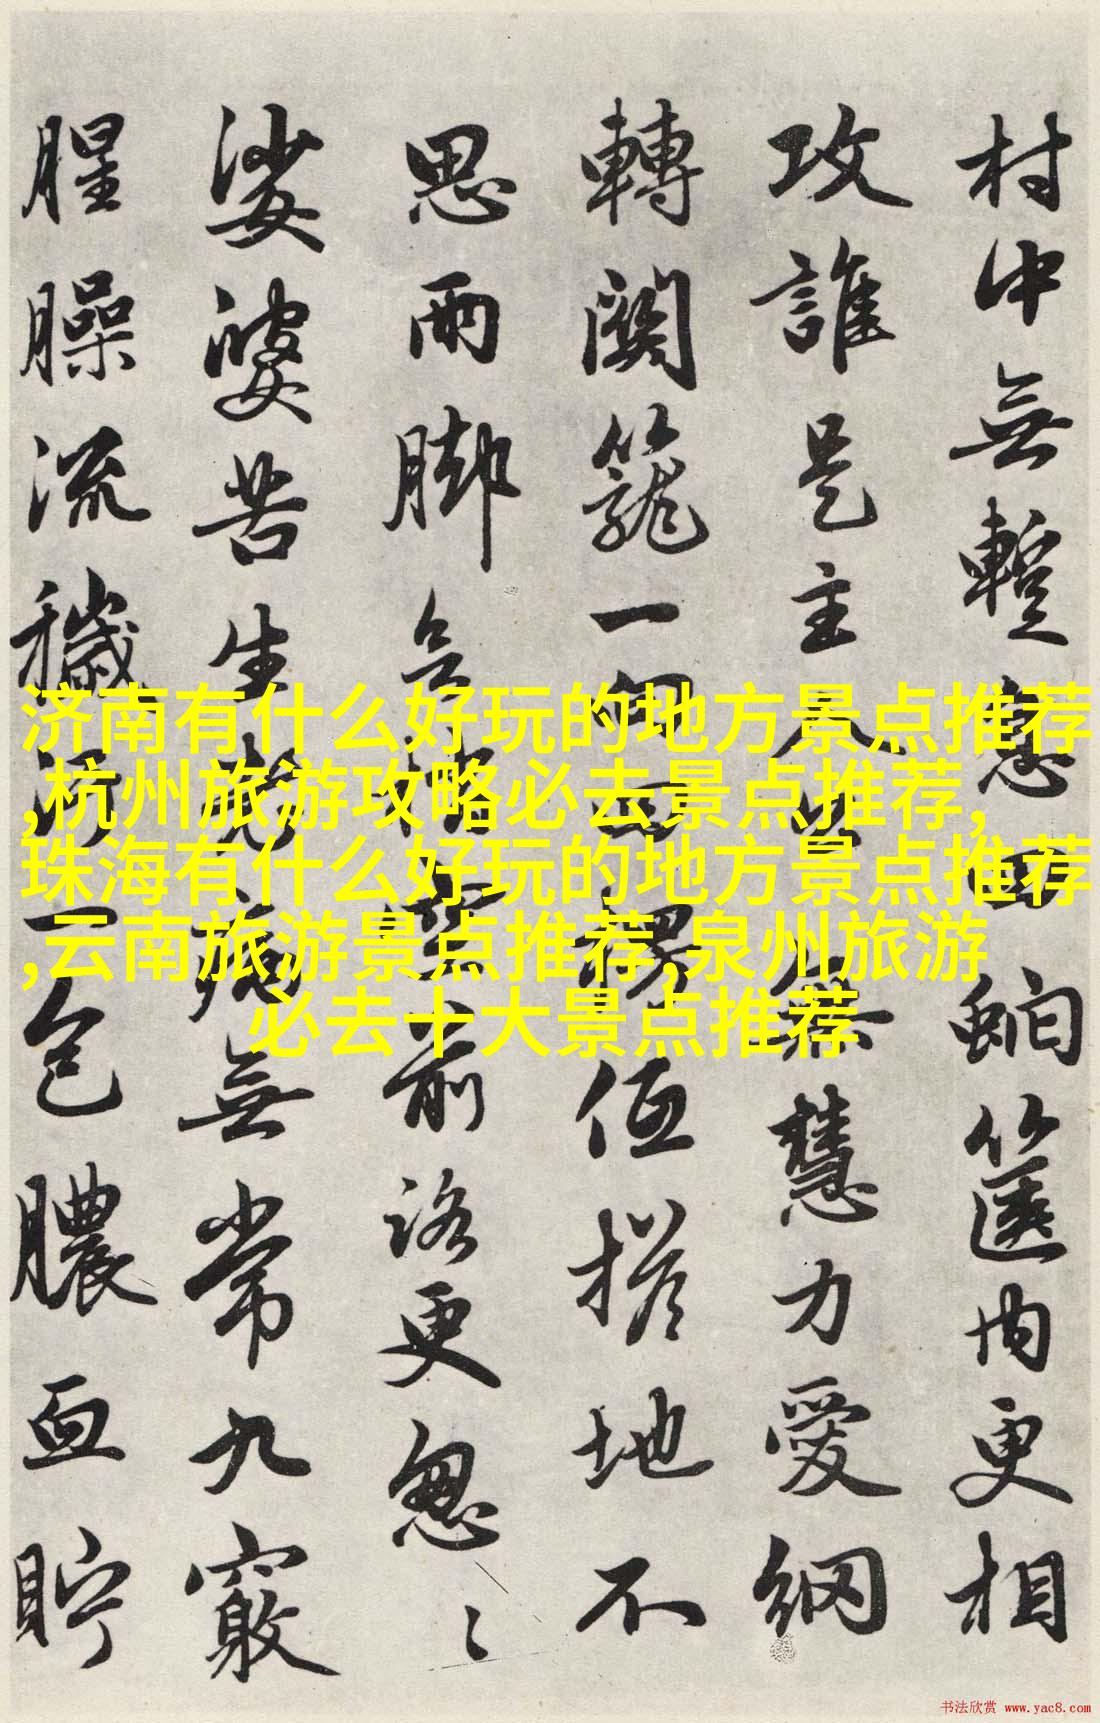 村中無憩四蛇篋内更相
攻誰是主人無慧力愛網
轉關籠一向四楞搭地不
思兩脚前路更忽〻
娑婆苦生老病無常九竅
腥臊流穢污一包膿血貯
济南有什么好玩的地方景点推荐
,杭州旅游攻略必去景点推荐,
珠海有什么好玩的地方景点推荐
,云南旅游景点推荐,泉州旅游
必去十大景点推荐
书法欣赏 www.yac8.com